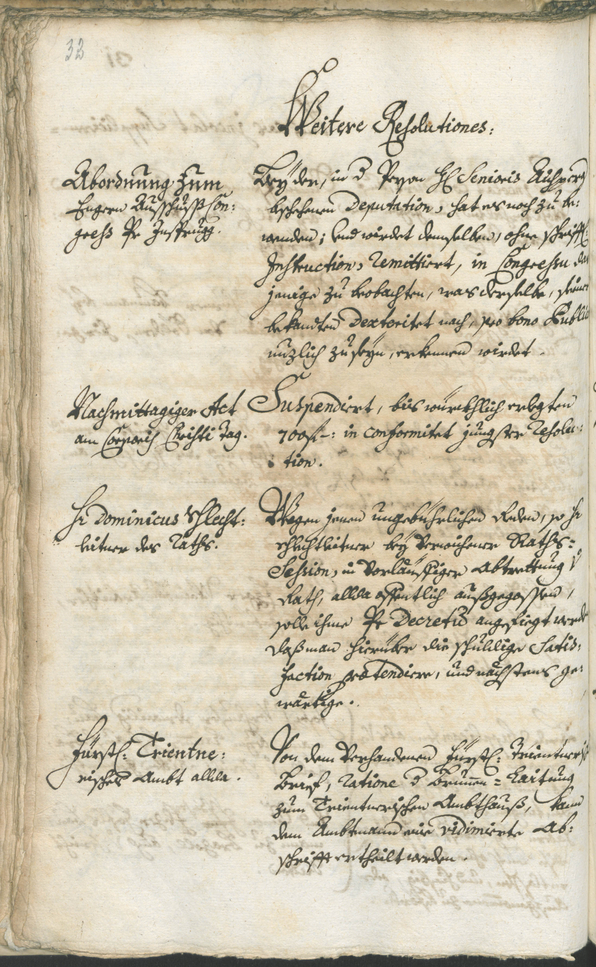 32
Weitere Resolutiones:
Abordnung zum
Engern Ausschuß Con:
greß Pr Insprugg.
Bey der, in d Person H: Senioris Aichperg
beschehenen Deputation, hat es noch zu be:
wenden; und wirdet demselben, ohne schrifft:
Instruction, remittiert, in Congressu das
jenige zu beobachten, was derselbe, seiner
bekandten Dexteritet nach, pro bono Publico
nuzlich zu seyn, erkennen wirdet.
Nachmittagiger Act
am Corporis Christi Tag.
Suspendiert, bis würckhlich erlegten
700 f: in conformitet jungster Resolu:
tion.
Hr Dominicus Schlecht:
leitner des Raths.
Wegen jenen ungebührlichen Reden, so Hr
Schlechtleitner bey verwichener Raths=
Session, in vorläuffiger Abtrettung
Rath, allda offentlich außgegossen,
solle ihme Pr Decretum angefiegt werden
daß man hierüber die schuldige Satis:
faction prætendiere, und nächstens ge:
wärtige.
Fürstl: Trientne:
risches Ambt allda.
Von dem verhandenen Fürstl: Trientner:
Brief, ratione d Brunnen=Laitung
zum Trientnerischen Ambthauß, kann
dem Ambtmann eine vidimierte Ab:
schrifft ertheilt werden.